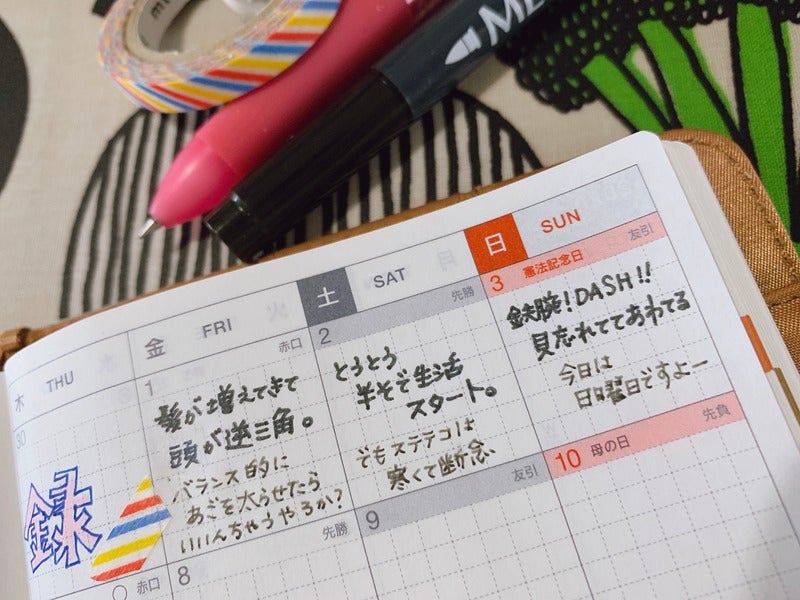 木 THU
金 FRI
土 SAT
日 SUN
30
緑
赤口
1 赤口
髪が増えてきて
頭が逆三角。
バランス的に
あごを太らせたら
いいんちゃうやろか?
2 先勝
とうとう
半そで生活
スタート。
でもステテコは
寒くて断念
3 憲法記念日 友引
鉄腕!DASH!!
見忘れててあわてる
今日は
日曜日ですよー
8 先勝
9 友引
10 母の日 先負